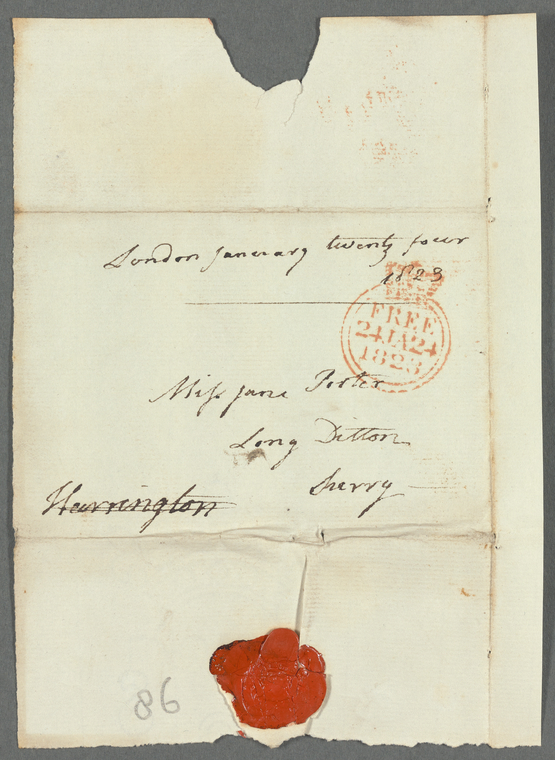 London January twenty four
1823
FREE
24 JA 24
1823
Miss Jane Porter
Long Ditton
Surry
Harrington
86